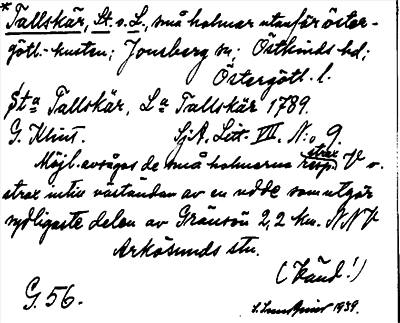 * Tallskär, St. o. L., små holmar utanför öster-
götl.-kusten; Jonsberg sn; Östkinds hd;
Östergötl. l.
Sta Tallskär, La Tallskär 1789.
G. Klint. SjA, Litt. VII. N:o 9.
Möjl. avsågos de små holmarna strax V o.
strax intill västsidan av en udde som utgör
sydligaste delen av Gränsön 2,2 km. NNV
Arkösunds stn.
(Känd!)
G. 56. 1939.